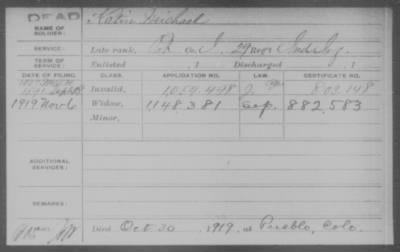 DEAD
NAME OF SOLDIER: Katin Michael
SERVICE: Late rank, Co. I, 29 Regt Ind. Inf.
TERM OF SERVICE: Enlisted , 1 Discharged , 1
DATE OF FILING. CLASS. APPLICATION NO. LAW. CERTIFICATE NO.
Invalid, 1054.448 803.148
1919 Nov 6 Widow, 1148381 882.583
Minor,
ADDITIONAL SERVICES:
REMARKS:
Died Oct 30 1919, at Pueblo, Colo.